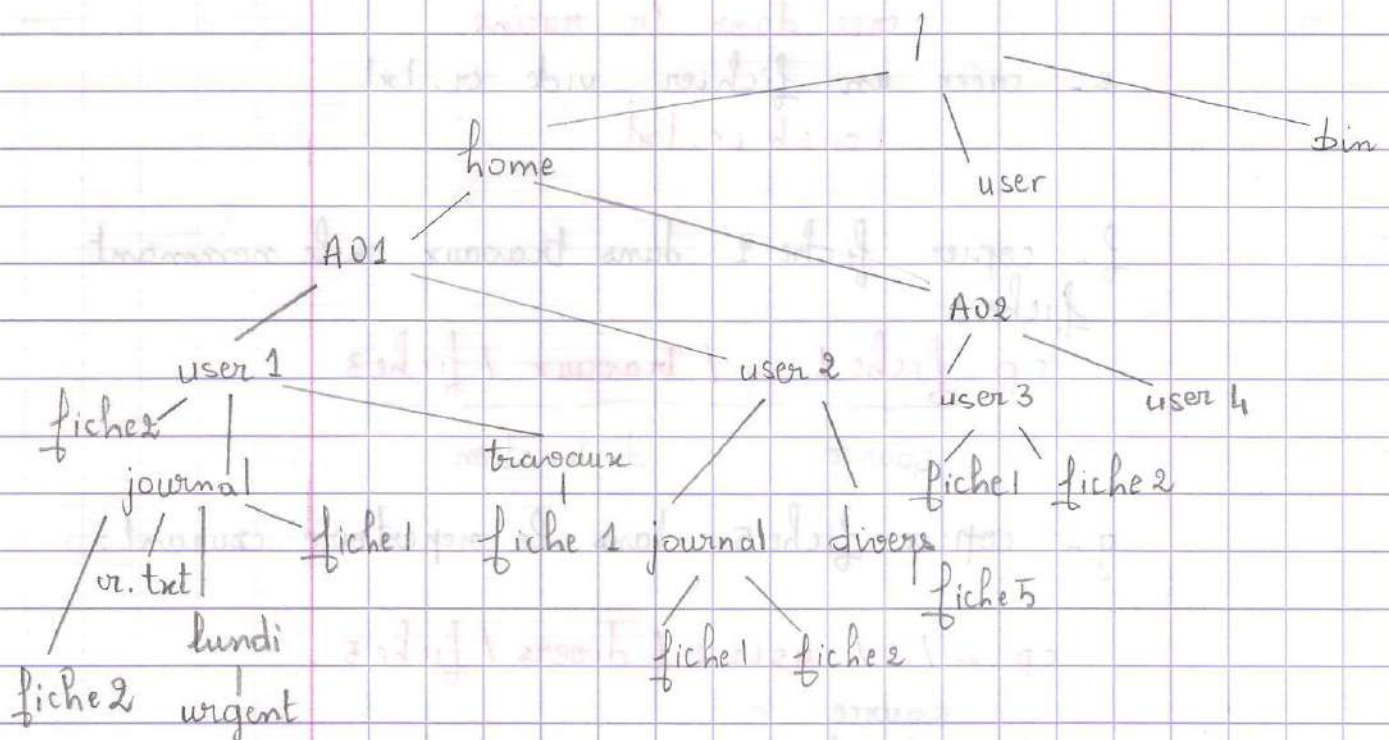 /
home user bin
A01 A02
user 1 user 2 user 3 user 4
fiche2 journal travaux fiche1 fiche 2
cr.txt fiche1 fiche 1 journal divers
fiche5
lundi fiche1 fiche2
fiche2 urgent